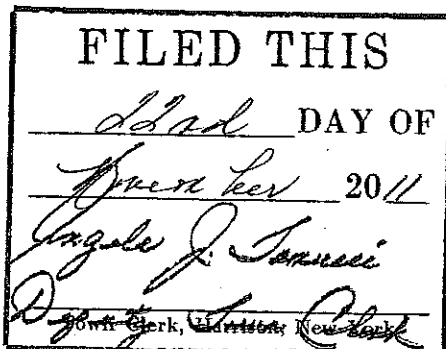 FILED THIS
22nd DAY OF
November 2011
J.
Deputy Town Clerk
Town Clerk, Harrison, New York